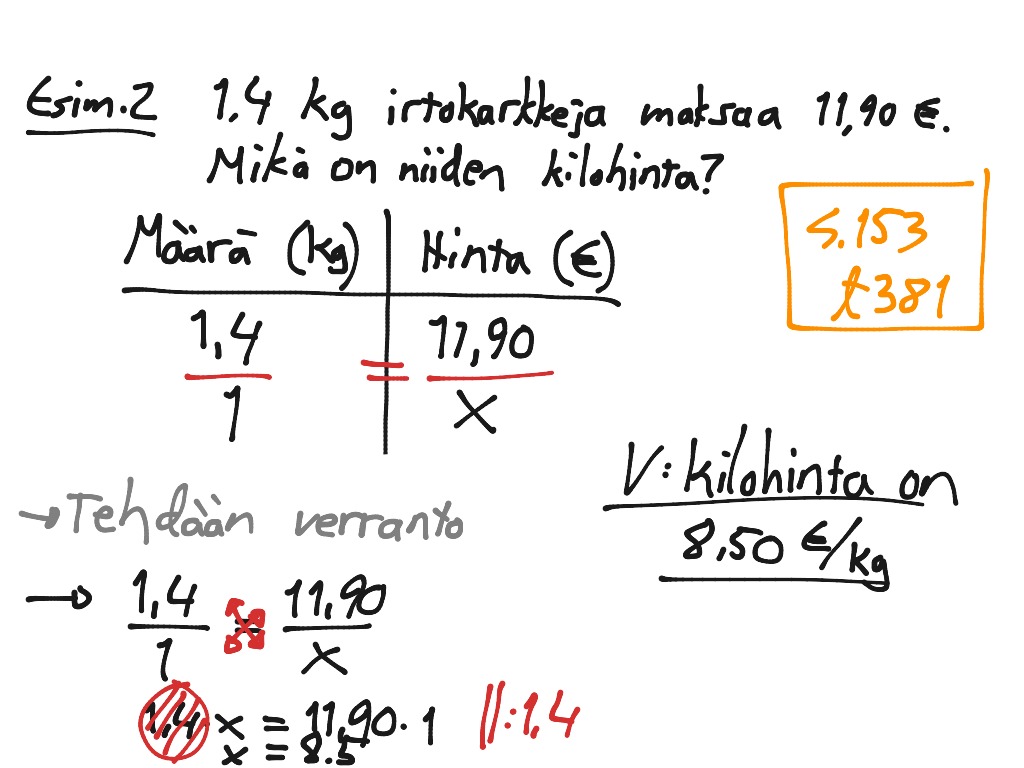 Esim.2 1,4 kg irtokarkkeja maksaa 11,90 €.
Mikä on niiden kilohinta?
s.153
t381
Määrä (kg) Hinta (€)
1,4 = 11,90
1 x
→ Tehdään verranto
V: kilohinta on
8,50 €/kg
→ 1,4 = 11,90
1 x
1,4 x = 11,90 · 1 ||:1,4
x = 8.5